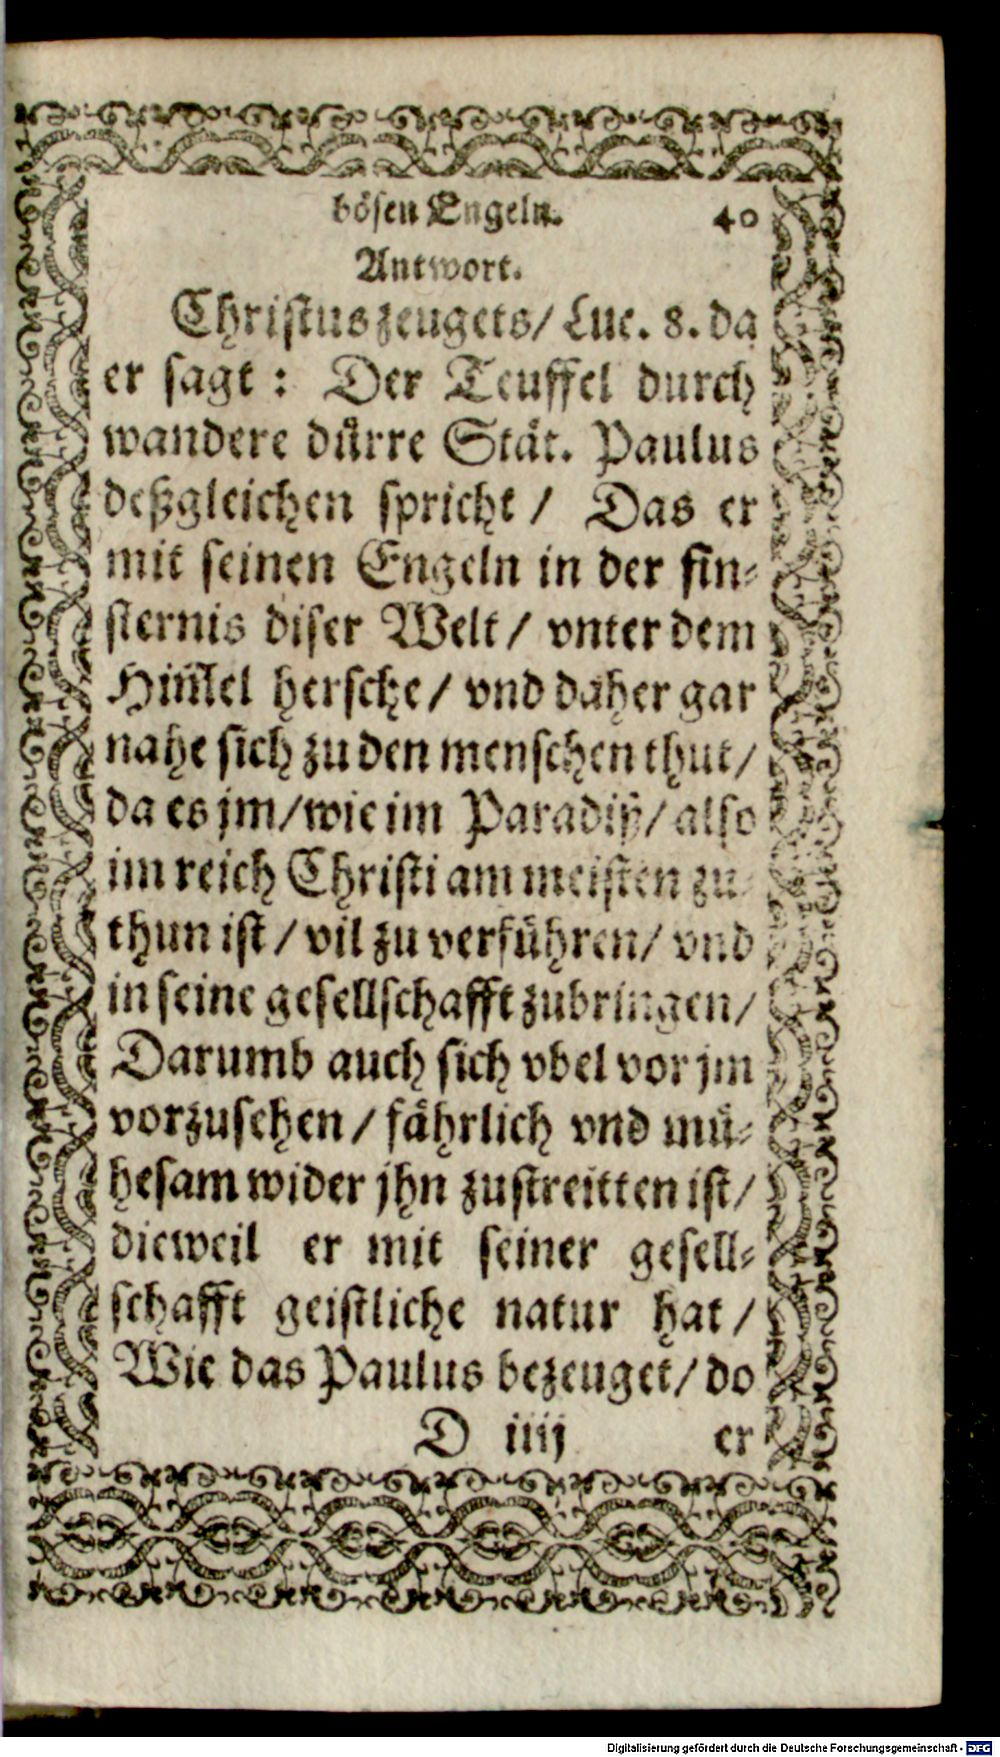 bösen Engeln. 40
Antwort.
Christus zeugets/ Luc. 8. da
er sagt : Der Teuffel durch
wandere dürre Stät. Paulus
deßgleichen spricht / Das er
mit seinen Engeln in der fin⸗
sternis diser Welt / vnter dem
Him̃el hersche / vnd daher gar
nahe sich zu den menschen thut /
da es jm/wie im Paradiß/ also
im reich Christi am meisten zu⸗
thun ist / vil zu verführen/ vnd
in seine gesellschafft zubringen /
Darumb auch sich vbel vor jm
vorzusehen / fährlich vnd mü⸗
hesam wider jhn zustreitten ist/
dieweil er mit seiner gesell⸗
schafft geistliche natur hat /
Wie das Paulus bezeuget/ do
D iiij er
Digitalisierung gefördert durch die Deutsche Forschungsgemeinschaft - DFG